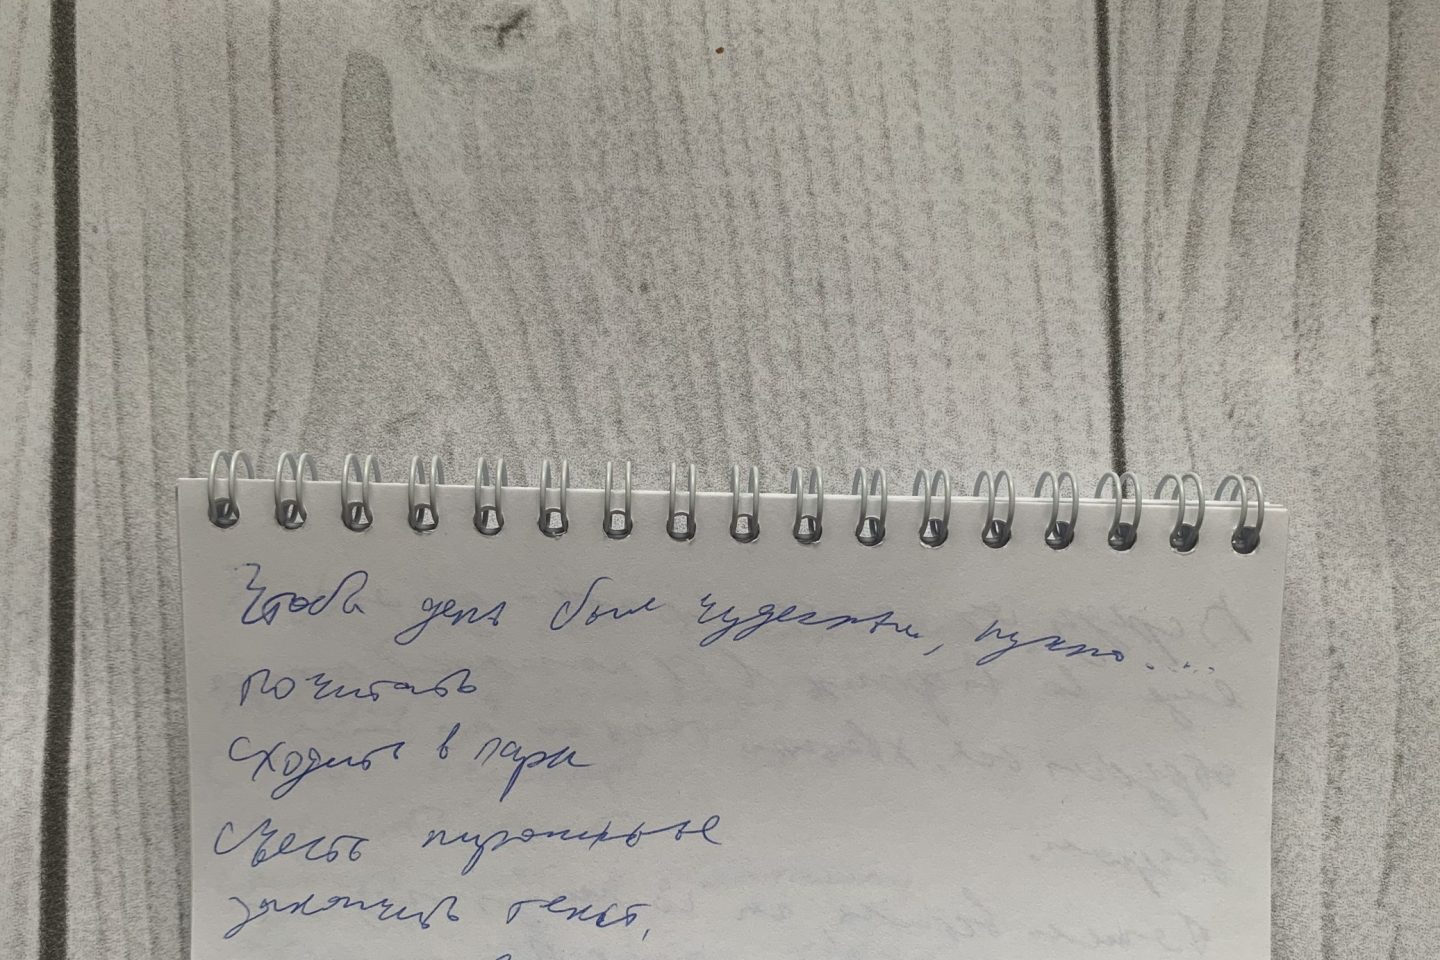 Чтобы день был чудесным, нужно....
почитать
сходить в парк
съесть пирожные
закончить текст,